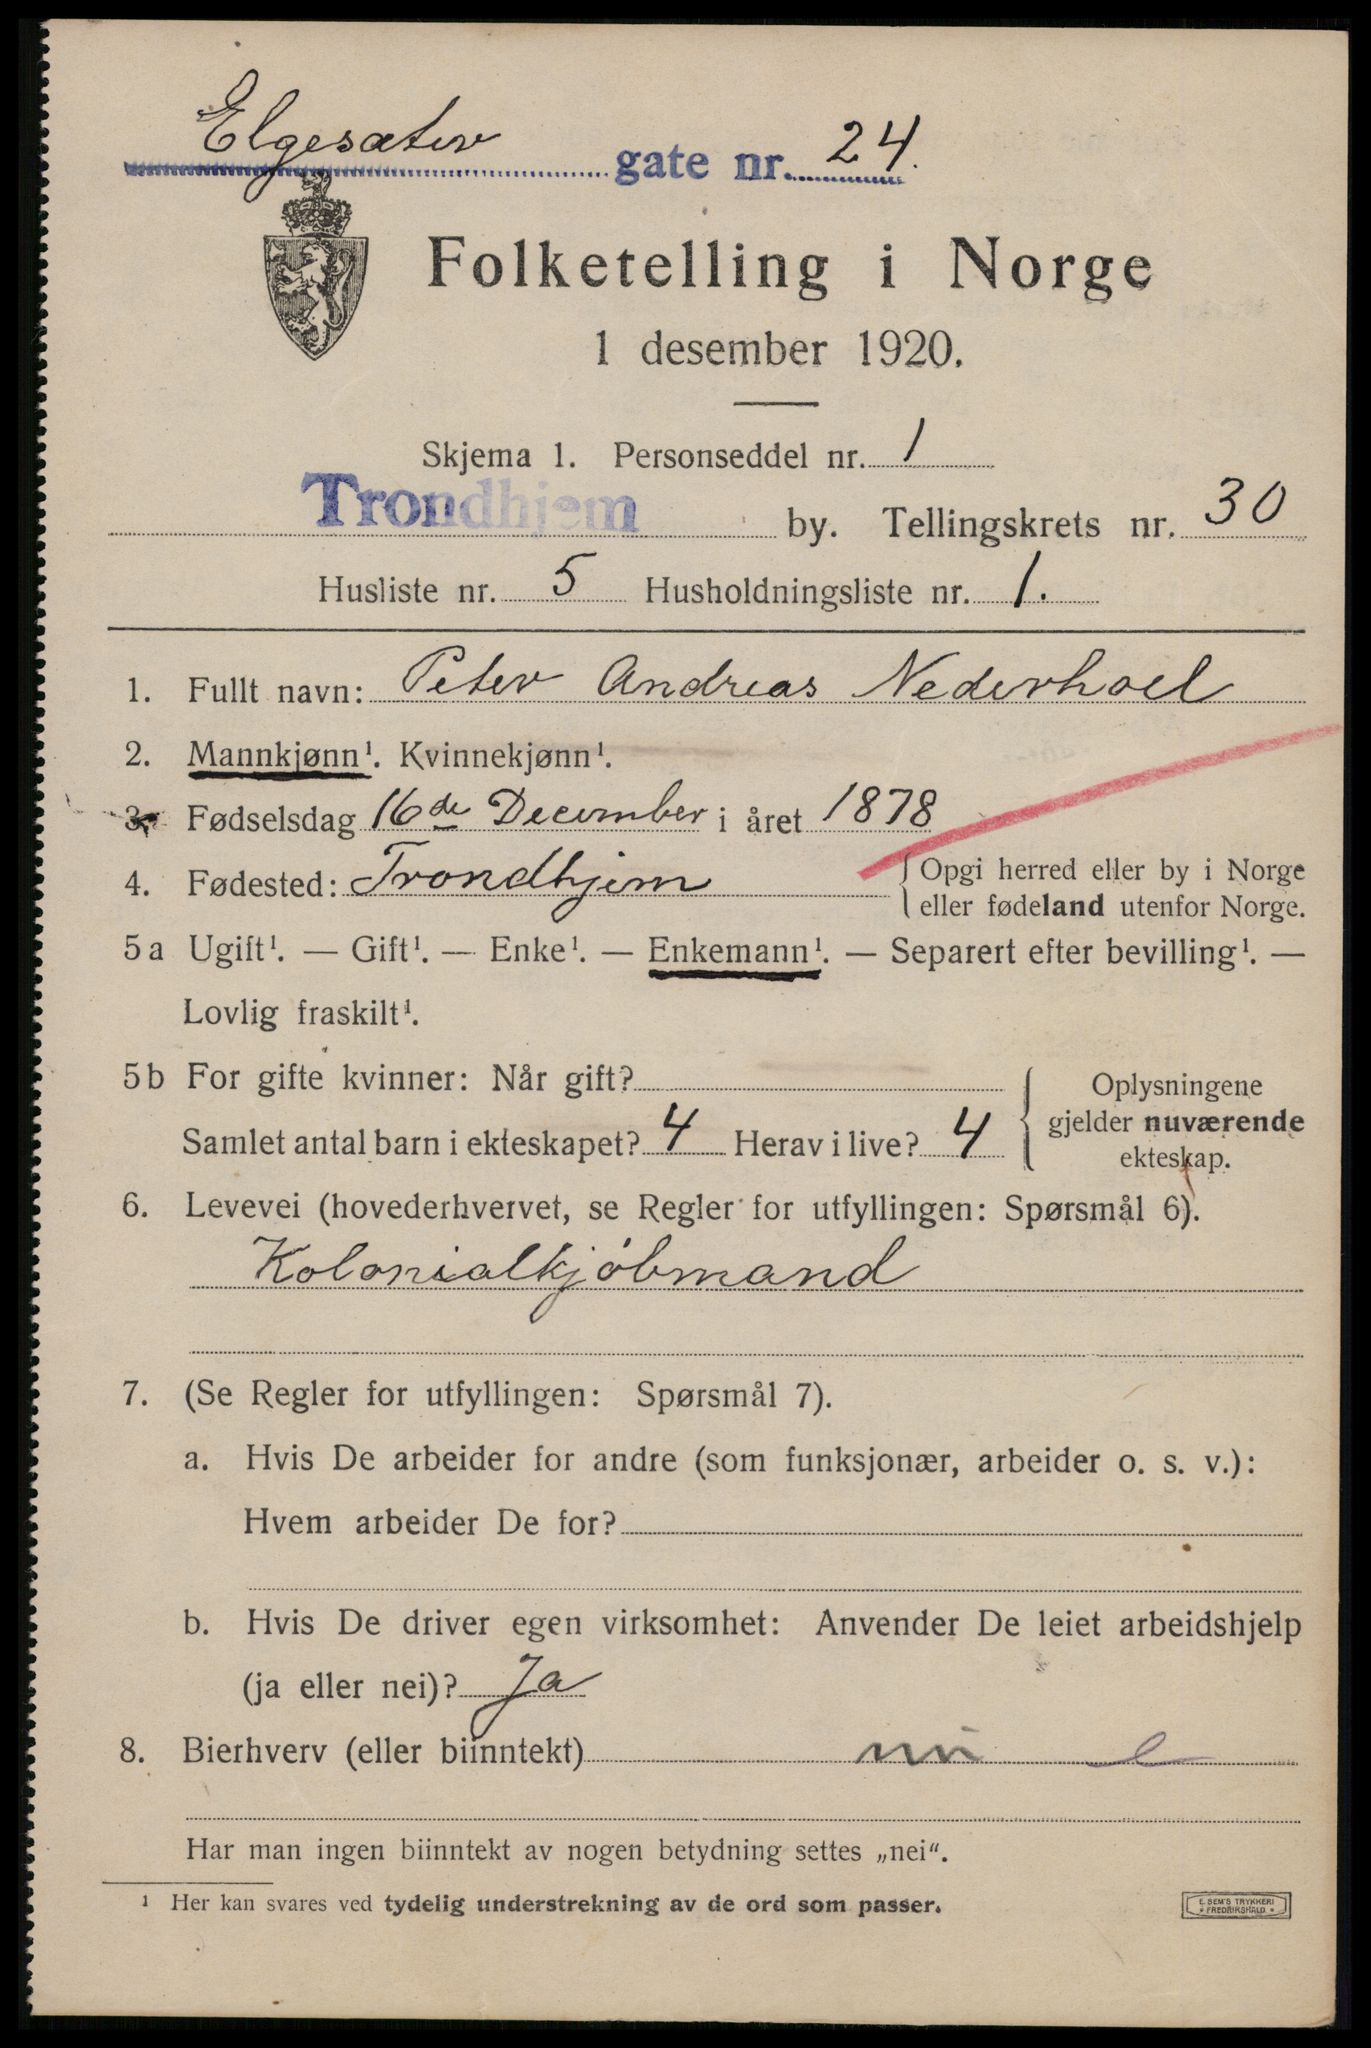 Elgesæter gate nr. 24.
Folketelling i Norge
1 desember 1920.
Skjema 1. Personseddel nr. 1
Trondhjem by. Tellingskrets nr. 30
Husliste nr. 5 Husholdningsliste nr. 1.
1. Fullt navn: Peter Andreas Nederhoel
2. Mannkjønn¹. Kvinnekjønn¹.
3. Fødselsdag 16de December i året 1878
4. Fødested: Trondhjem { Opgi herred eller by i Norge
eller fødeland utenfor Norge.
5 a Ugift¹. — Gift¹. — Enke¹. — Enkemann¹. — Separert efter bevilling¹. —
Lovlig fraskilt¹.
5 b For gifte kvinner: Når gift?
Samlet antal barn i ekteskapet? 4 Herav i live? 4
Oplysningene
gjelder nuværende
ekteskap.
6. Levevei (hovederhvervet, se Regler for utfyllingen: Spørsmål 6).
Kolonialkjøbmand
7. (Se Regler for utfyllingen: Spørsmål 7).
a. Hvis De arbeider for andre (som funksjonær, arbeider o. s. v.):
Hvem arbeider De for?
b. Hvis De driver egen virksomhet: Anvender De leiet arbeidshjelp
(ja eller nei)? Ja
8. Bierhverv (eller biinntekt)
Har man ingen biinntekt av nogen betydning settes „nei“.
¹ Her kan svares ved tydelig understrekning av de ord som passer.
E. SEM'S TRYKKERI
* FREDRIKSHALD *